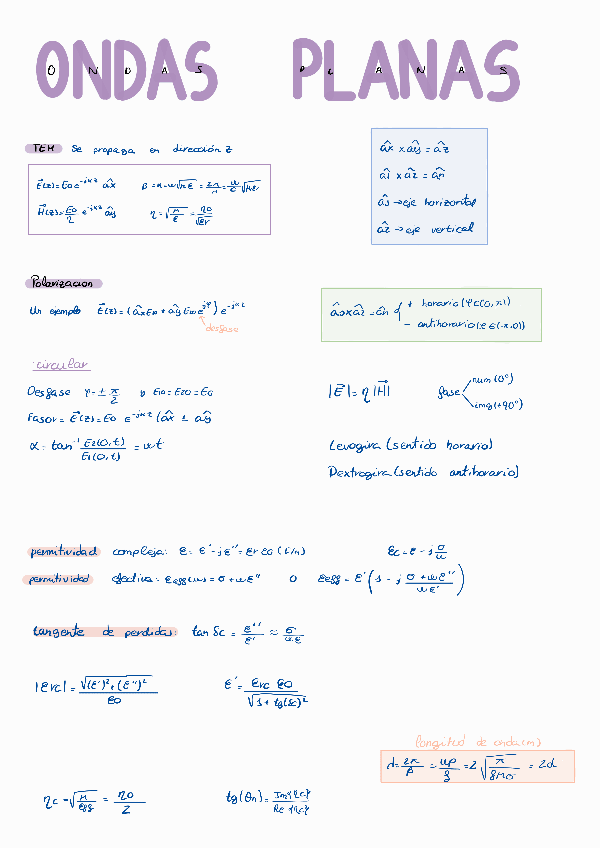 ONDAS PLANAS
O N D A S P L A N A S
TEM Se propaga en dirección z
E⃗(z)=E0 e^-jkz âx β=k=w√με = 2π/λ = w/c √με
H⃗(z)=E0/η e^-jkz ây η=√μ/ε = η0/√εr
âx x ây = âz
â1 x â2 = ân
â1 → eje horizontal
â2 → eje vertical
Polarizacion
Un ejemplo E⃗(z) = (âx E10 + ây E20 e^jφ) e^-jkz
desfase
â1 x â2 = ân { + horario (φ∈(0,π)
- antihorario (φ∈(-π,0))
circular
Desfase φ=± π/2 y E10 = E20 = E0
Fasor = E⃗(z) = E0 e^-jkz (âx ± ây
α = tan⁻¹ E2(0,t)/E1(0,t) = wt
|E⃗| = η |H⃗| fase num (0°)
img (+90°)
Levogira (sentido horario)
Dextrogira (sentido antihorario)
permitividad compleja: ε = ε' - jε'' = εr ε0 (F/m) εc = ε - j σ/w
permitividad efectiva = εeff(w) = σ + wε'' o εeff = ε' (1 - j σ + wε''/wε')
tangente de perdidas: tan δc = ε''/ε' ≈ σ/wε
|εrc| = √(ε')² + (ε'')²/ε0 ε' = εrc ε0/√1 + tg(δc)²
longitud de onda (m)
ηc = √μ/εeff = η0/2 tg(θn) =